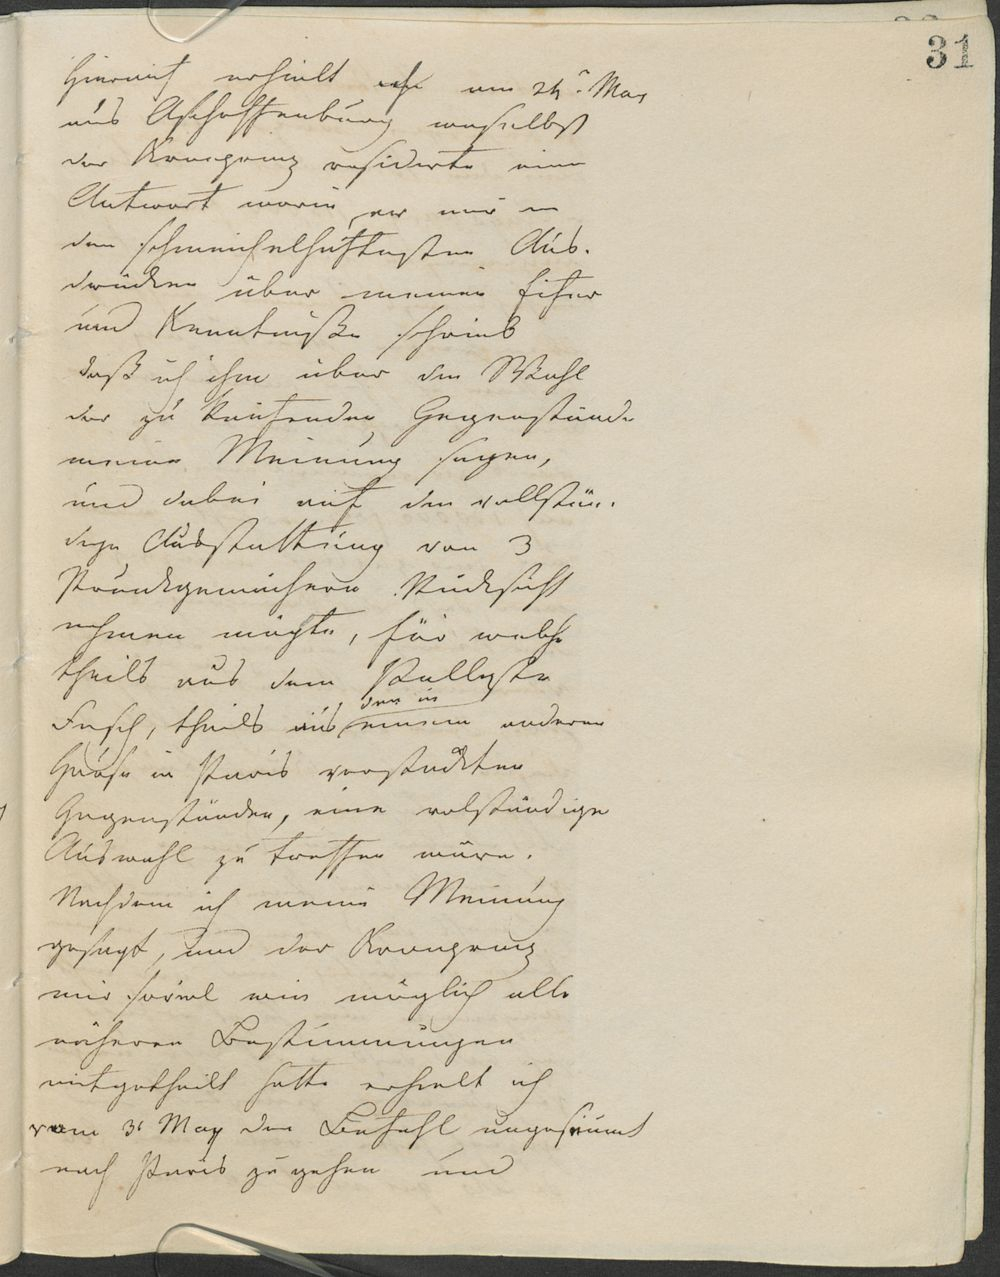 31
Hierauf erhielt ich am 24. May
aus Aschaffenburg woselbst
der Kronprinz residirte eine
Antwort worin er mir in
den schmeichelhaftesten Aus-
drücken über meinen Eifer
und Kenntniße schrieb
daß ich ihm über die Wahl
der zu kaufenden Gegenstände
meine Meinung sagen,
und dabei auf die vollstän-
dige Ausstattung von 3
Prunkgemächern Rücksicht
nehmen mögte, für welche
theils aus dem Pallaste
Fesch, theils aus den in einem anderen
Hause in Paris versteckten
Gegenständen, eine volständige
Auswahl zu treffen wäre.
Nachdem ich meine Meinung
gesagt, und der Kronprinz
mir soviel wie möglich alle
näheren Bestimmungen
mitgetheilt hatte erhielt ich
vom 31 May den Befehl ungesäumt
nach Paris zu gehen und